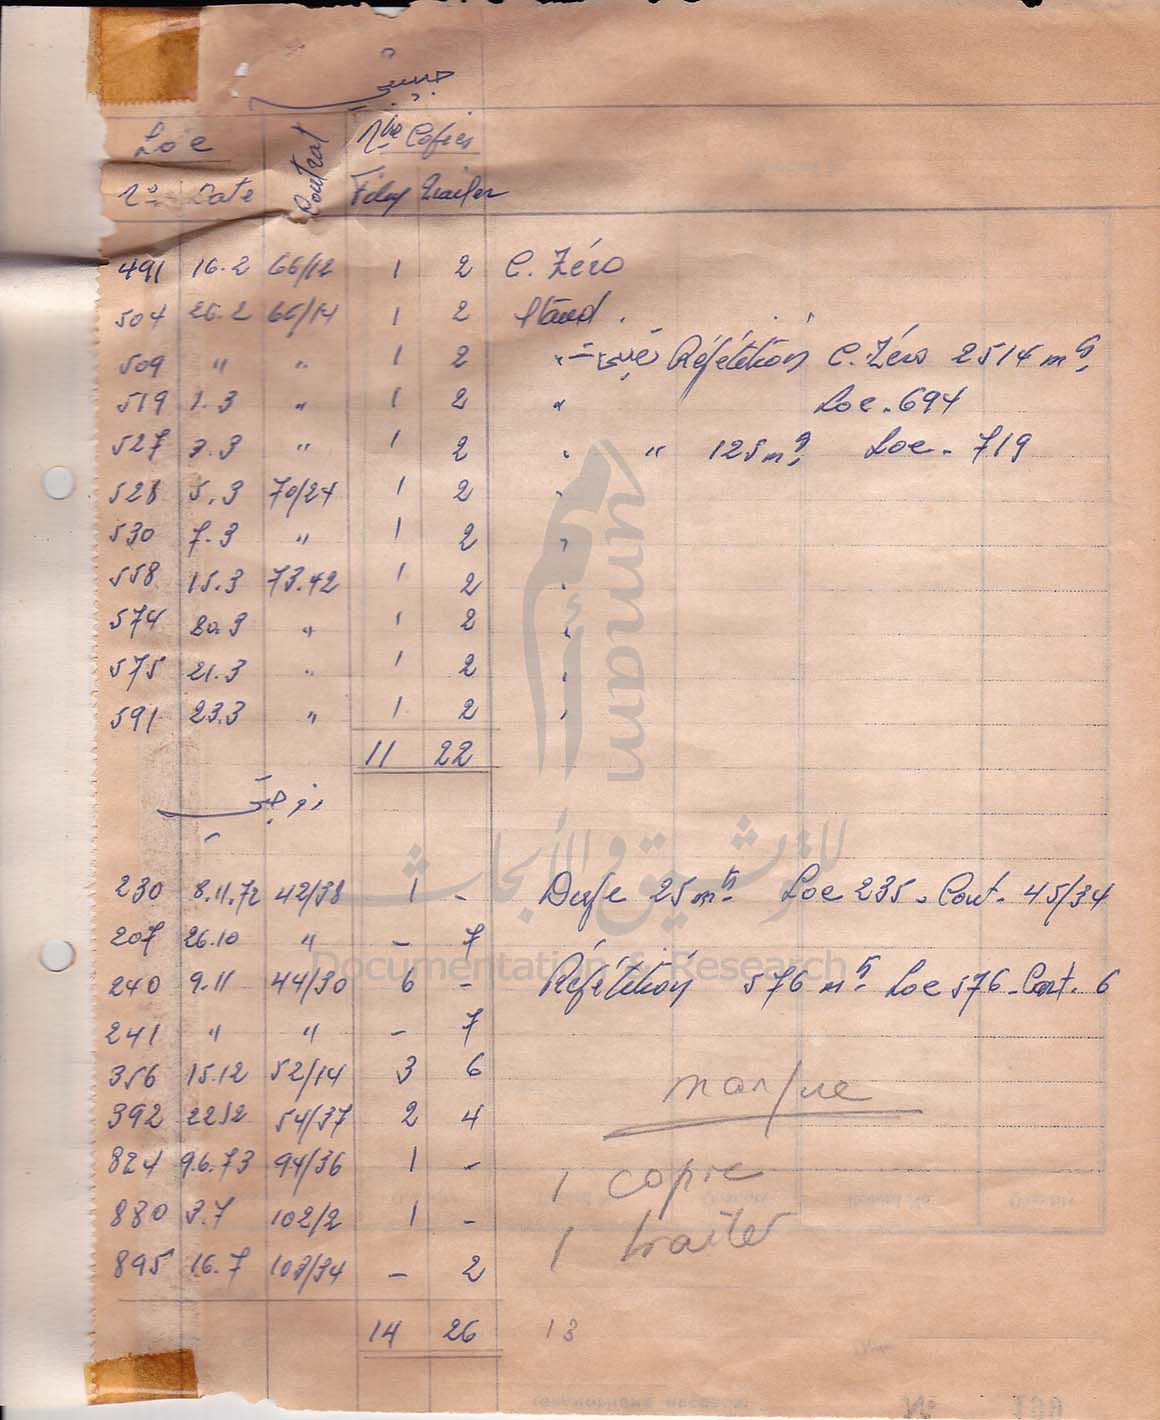 حبيبتي
Loc Contrat Nbe Copies
No Date Film Trailer
491 16.2 66/12 1 2 C. Zéro
504 26.2 66/14 1 2 Stand.
509 " " 1 2 " Répétition C. Zéro 2514 ms
519 1.3 " 1 2 " Loc. 694
527 3.3 " 1 2 " " 125 ms Loc. 719
528 5.3 70/24 1 2 "
530 7.3 " 1 2 "
558 15.3 73.42 1 2 "
574 20.3 " 1 2 "
575 21.3 " 1 2 "
591 23.3 " 1 2 "
11 22
زوجتي
230 8.11.72 42/38 1 - Dupe 25 ms Loc 235. Cont. 45/34
207 26.10 " - 7
240 9.11 44/30 6 - Répétition 576 ms Loc 576. Cont. 6
241 " " - 7
356 15.12 52/14 3 6
392 22.12 54/37 2 4
manque
824 9.6.73 94/36 1 -
1 copie
880 3.7 102/2 1 -
1 trailer
895 16.7 103/34 - 2
14 26 13
ummam
للتوثيق والأبحاث
Documentation & Research